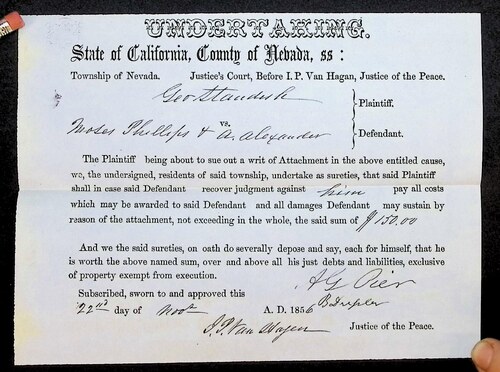 UNDERTAKING.
State of California, County of Nevada, ss:
Township of Nevada. Justice's Court, Before I. P. Van Hagan, Justice of the Peace.
Geo Standish
Plaintiff.
vs.
Moses Phillips & A. Alexander
Defendant.
The Plaintiff being about to sue out a writ of Attachment in the above entitled cause,
we, the undersigned, residents of said township, undertake as sureties, that said Plaintiff
shall in case said Defendant recover judgment against him pay all costs
which may be awarded to said Defendant and all damages Defendant may sustain by
reason of the attachment, not exceeding in the whole, the said sum of $150.00
And we the said sureties, on oath do severally depose and say, each for himself, that he
is worth the above named sum, over and above all his just debts and liabilities, exclusive
of property exempt from execution.
Subscribed, sworn to and approved this
22nd day of Nov A. D. 1856
I. P. Van Hagan Justice of the Peace.